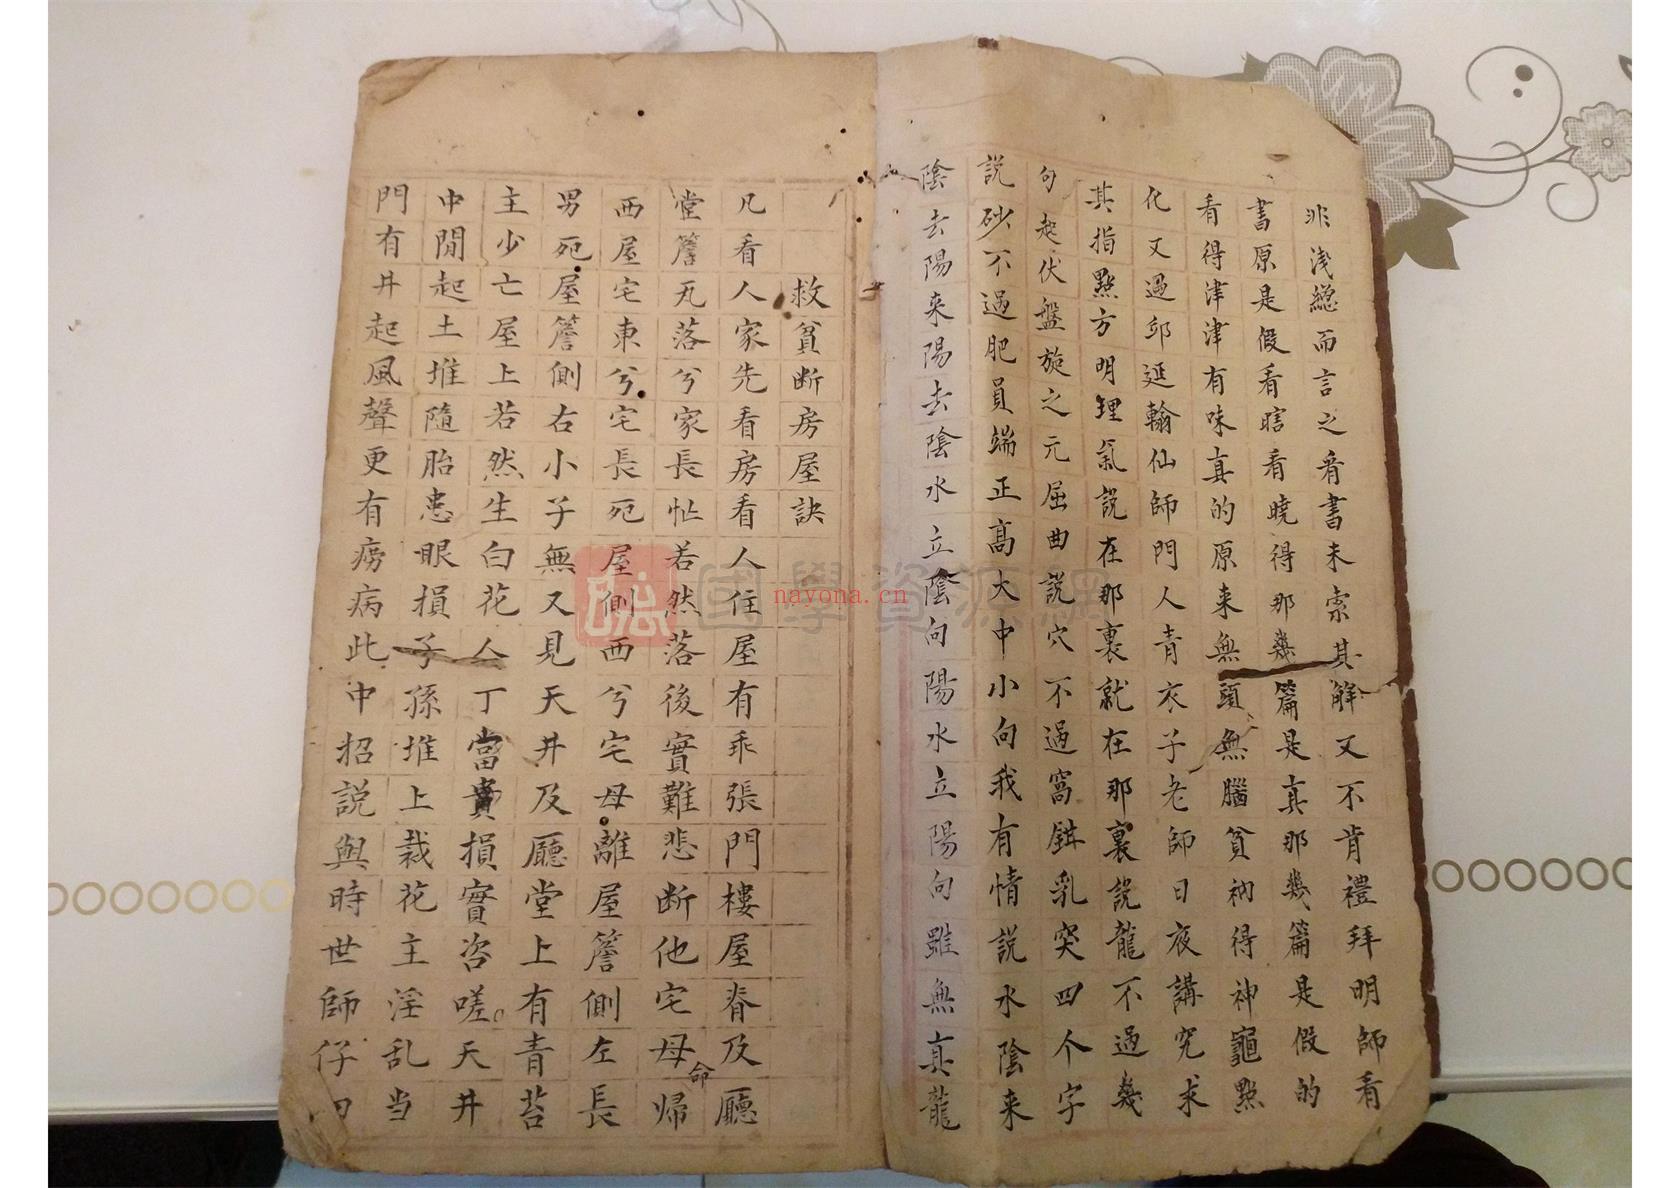 非浅緫而言之看書未索其解又不肯禮拜明師看
書原是假看瞎看曉得那幾篇是真那幾篇是假的
看得津津有味真的原来無頭無腦貧衲得神龜點
化又過邱延翰仙師門人青衣子老師日夜講究求
其指點方明理氣説在那裏就在那裏説龍不過幾
句起伏盤旋之元屈曲説穴不過窩鉗乳突四个字
説砂不過肥員端正高大中小向我有情説水陰来
陰去陽来陽去陰水立陰向陽水立陽向雖無真龍
救貧断房屋訣
凡看人家先看房看人住屋有乖張門樓屋脊及廳
堂簷瓦落兮家長怔若然落後實難悲断他宅母命歸
西屋宅東兮宅長死屋側西兮宅母離屋簷側左長
男死屋簷側右小子無又見天井及廳堂上有青苔
主少亡屋上若然生白花人丁當損實咨嗟天井
中間起土堆隨胎患眼損子孫堆上栽花主淫乱当
門有井起風聲更有癆病此中招説與時世師仔
國學資源網
nayona.cn